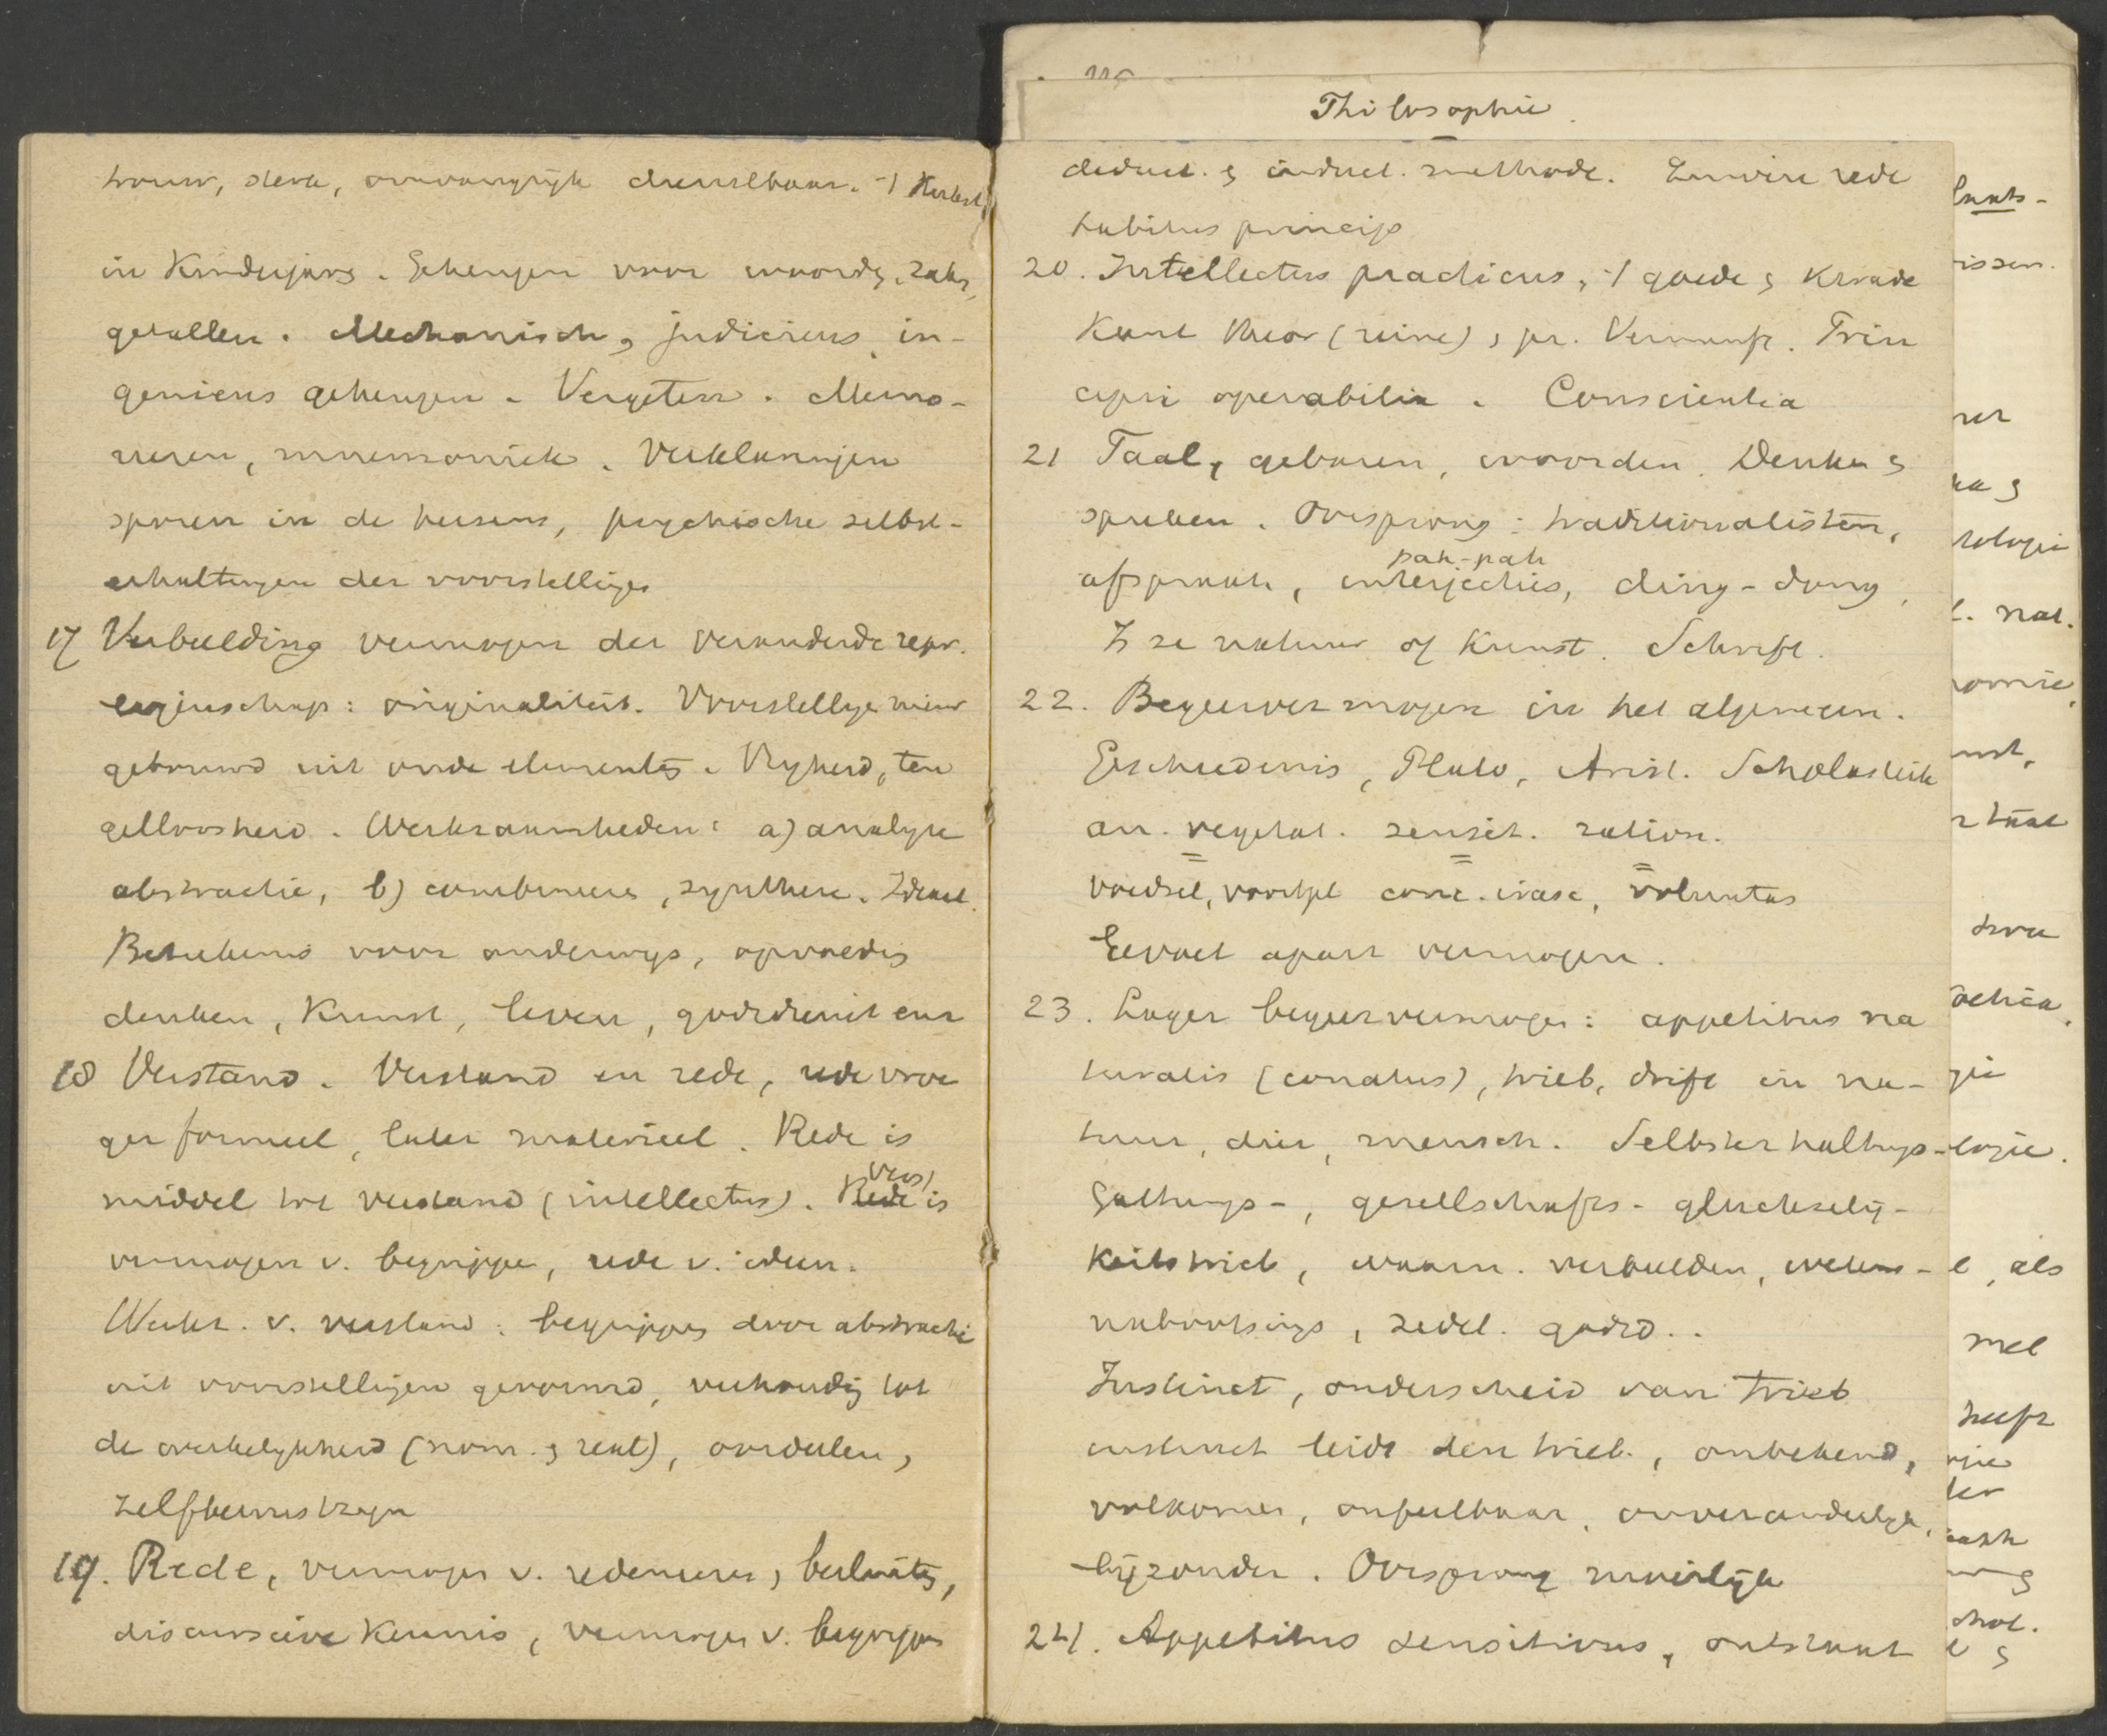 trouw, sterk, omvangrijk dienstbaar. 't sterkst
in kinderjaren. Geheugen voor woorden, zaken,
getallen. Mechanisch, judicieus, in-
genieus geheugen. Vergeten. Memo-
riseren, mnemoniek. Verklaringen
sporen in de hersens, psychische selbst-
erhaltungen der voorstellingen
17 Verbeelding vermogen der veranderde repr.
eigenschap: originaliteit. Voorstellingen nieuw
gevormd uit oude elementen. Vrijheid, teu
gelloosheid. Werkzaamheden: a) analyse
abstractie, b) combineeren, synthese. Ideaal.
Beteekenis voor onderwijs, opvoeding
denken, kunst, leven, godsdienst enz
18 Verstand. Verstand en rede, rede vroe
ger formeel, later materieel. Rede is
middel tot verstand (intellectus). Rede is
verst
vermogen v. begrippen, rede v. ideen.
Werkz. v. verstand: begrippen door abstractie
uit voorstellingen gevormd, verhouding tot
de werkelijkheid (nom. en real), oordelen,
zelfbewustzijn
19. Rede, vermogen v. redeneeren, besluiten,
discursieve kennis, vermogen v. begrippen
Philosophie.
deduct. en induct. methode. Lumière rede
habitus princip
20. Intellectus practicus, 't goede en kwade
Kant theor (reine), pr. Vernunft. Prin
cipii operabilia. Conscientia
21 Taal, gebaren, woorden. Denken en
spreken. Oorsprong: traditionalisten,
pah-pah
afspraak, interjecties, ding-dong,
Is ze natuur of kunst. Schrift.
22. Begeervermogen in het algemeen.
Geschiedenis, Plato, Arist. Scholastiek
an. vegetat. sensit. ration.
voedsel, voortpl conc. irasc, voluntas
Gevoel apart vermogen.
23. Lager begeervermogen: appetitus na
turalis (conatus), trieb, drift in na-
tuur, dier, mensch. Selbsterhaltungs-
Gattungs-, gesellschafts- gluckselig-
keitstrieb, waarn. verbeelden, wetens-
nabootsings, zedel. godsd..
Instinct, onderscheid van Trieb
instinct leidt den trieb., onbekend,
volkomen, onfeilbaar, onveranderlijk,
bijzonder. Oorsprong moeilijk
24. Appetitus sensitivus, ontstaat